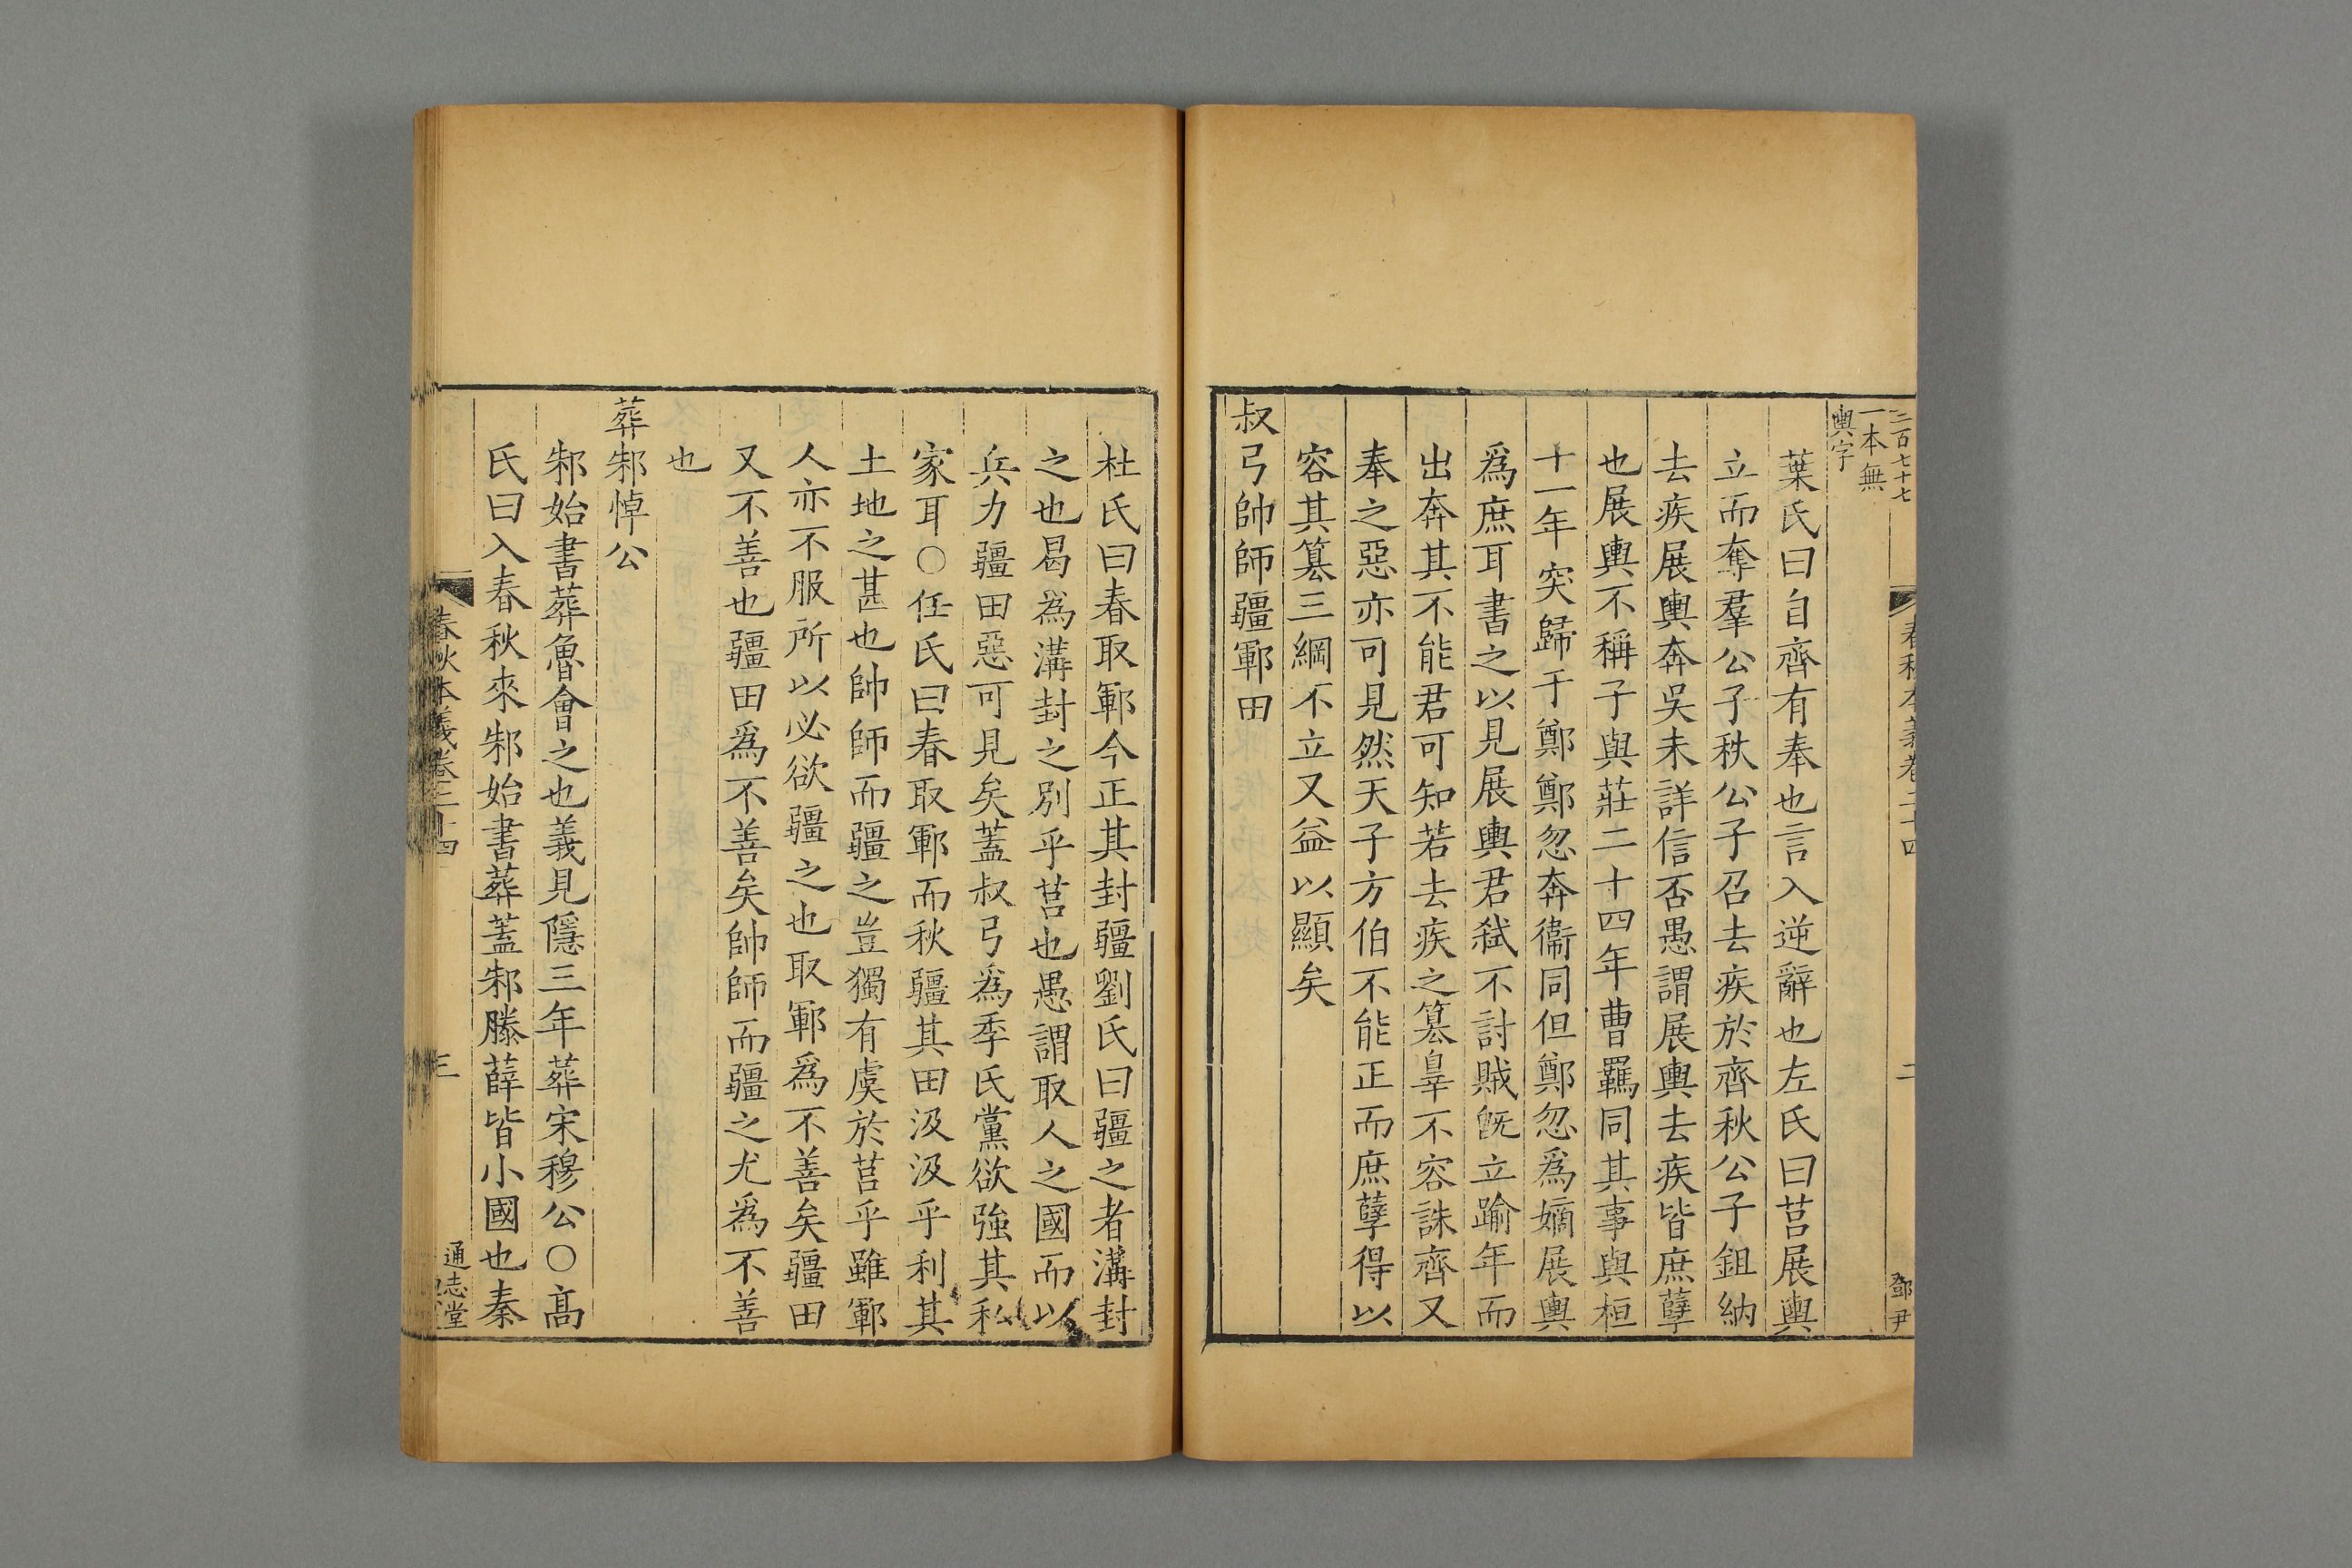 二百七十七
春秋本義卷二十四
二
鄧尹
一本無
輿字
葉氏曰自齊有奉也言入逆辭也左氏曰莒展輿
立而奪羣公子秩公子召去疾於齊秋公子鉏納
去疾展輿奔吳未詳信否愚謂展輿去疾皆庶孽
也展輿不稱子與莊二十四年曹羈同其事與桓
十一年突歸于鄭鄭忽奔衞同但鄭忽爲嫡展輿
爲庶耳書之以見展輿君弑不討賊旣立踰年而
出奔其不能君可知若去疾之篡辠不容誅齊又
奉之惡亦可見然天子方伯不能正而庶孽得以
容其篡三綱不立又益以顯矣
叔弓帥師疆鄆田
杜氏曰春取鄆今正其封疆劉氏曰疆之者溝封
之也曷爲溝封之別乎莒也愚謂取人之國而以
兵力疆田惡可見矣蓋叔弓爲季氏黨欲強其私
家耳○任氏曰春取鄆而秋疆其田汲汲乎利其
土地之甚也帥師而疆之豈獨有虞於莒乎雖鄆
人亦不服所以必欲疆之也取鄆爲不善矣疆田
又不善也疆田爲不善矣帥師而疆之尤爲不善
也
葬邾悼公
邾始書葬魯會之也義見隱三年葬宋穆公○高
氏曰入春秋來邾始書葬蓋邾滕薛皆小國也秦
春秋本義卷二十四
三
通志堂